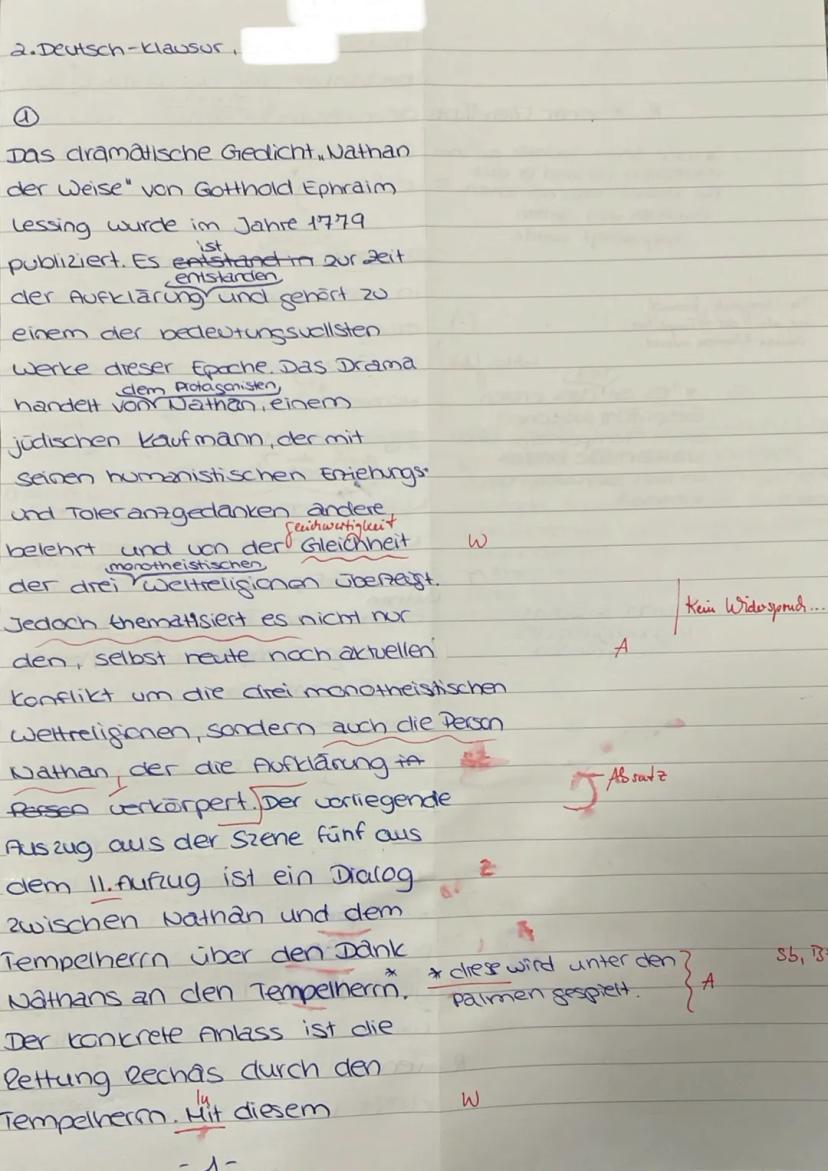 2. Deutsch-Klausur,
①
Das dramatische Gedicht „Nathan
der Weise" von Gotthold Ephraim
Lessing wurde im Jahre 1779
ist
publiziert. Es entstand in zur Zeit
entstanden
der Aufklärung und gehört zu
einem der bedeutungsvollsten
Werke dieser Epoche. Das Drama
dem Protagonisten,
handelt von Nathan, einem
jüdischen Kaufmann, der mit
seinen humanistischen Erziehungs-
und Toleranzgedanken andere
Gleichwertigkeit
belehrt und von der Gleichheit W
monotheistischen
der drei Weltreligionen überzeugt.
Jedoch thematisiert es nicht nur Kein Widerspruch...
den, selbst heute noch aktuellen A
Konflikt um die drei monotheistischen
Weltreligionen, sondern auch die Person
Nathan, der die Aufklärung in
Person verkörpert. Der vorliegende Absatz
Auszug aus der Szene fünf aus
dem II. Aufzug ist ein Dialog Z
zwischen Nathan und dem
Tempelherrn über den Dank
Nathans an den Tempelherrn.* * diese wird unter den Sb, B
Palmen gespielt. A
Der konkrete Anlass ist die
Rettung Rechas durch den
In
Tempelherrn. Mit diesem W
- 1 -